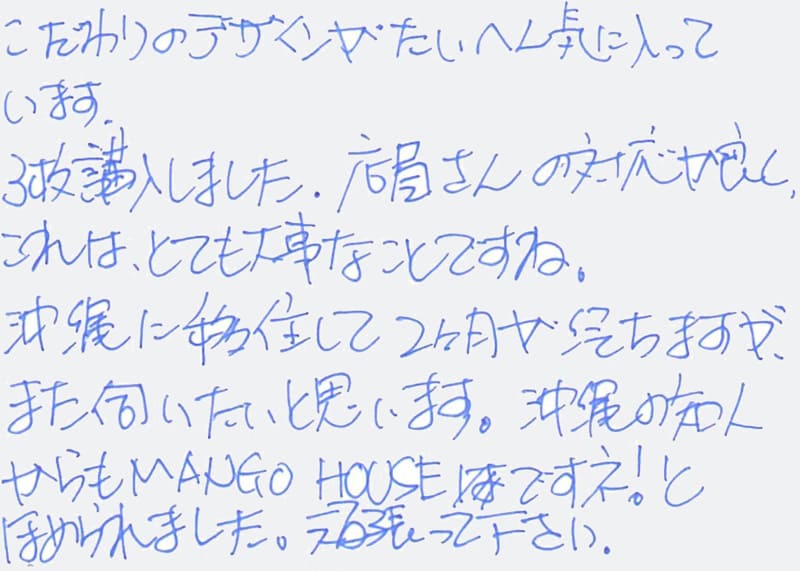 こだわりのデザインがたいへん気に入って
います.
3枚購入しました. 店員さんの対応が良く,
これは、とても大事なことですね。
沖縄に移住して2ヶ月が経ちますが、
また伺いたいと思います。沖縄の知人
からもMANGO HOUSEですネ!と
ほめられました。頑張って下さい.